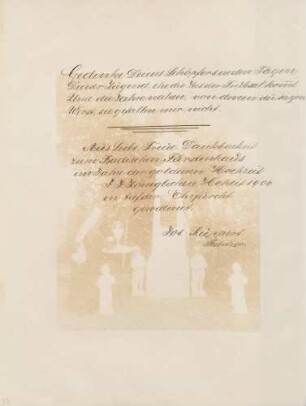 Gedenke Deines Schöpfers in den Tagen
Deiner Jugend, ehe die Tage der Trübsal kommen
Und die Jahre nahen, von denen du sagen
Wirst, sie gefallen mir nicht.
Aus Liebe, Treue, Dankbarkeit
zum Badischen Fürstenhaus
im Jahr der goldenen Hochzeit
I. I. Königlichen Hoheit 1906
in tiefster Ehrfurcht
gewidmet.
Jos